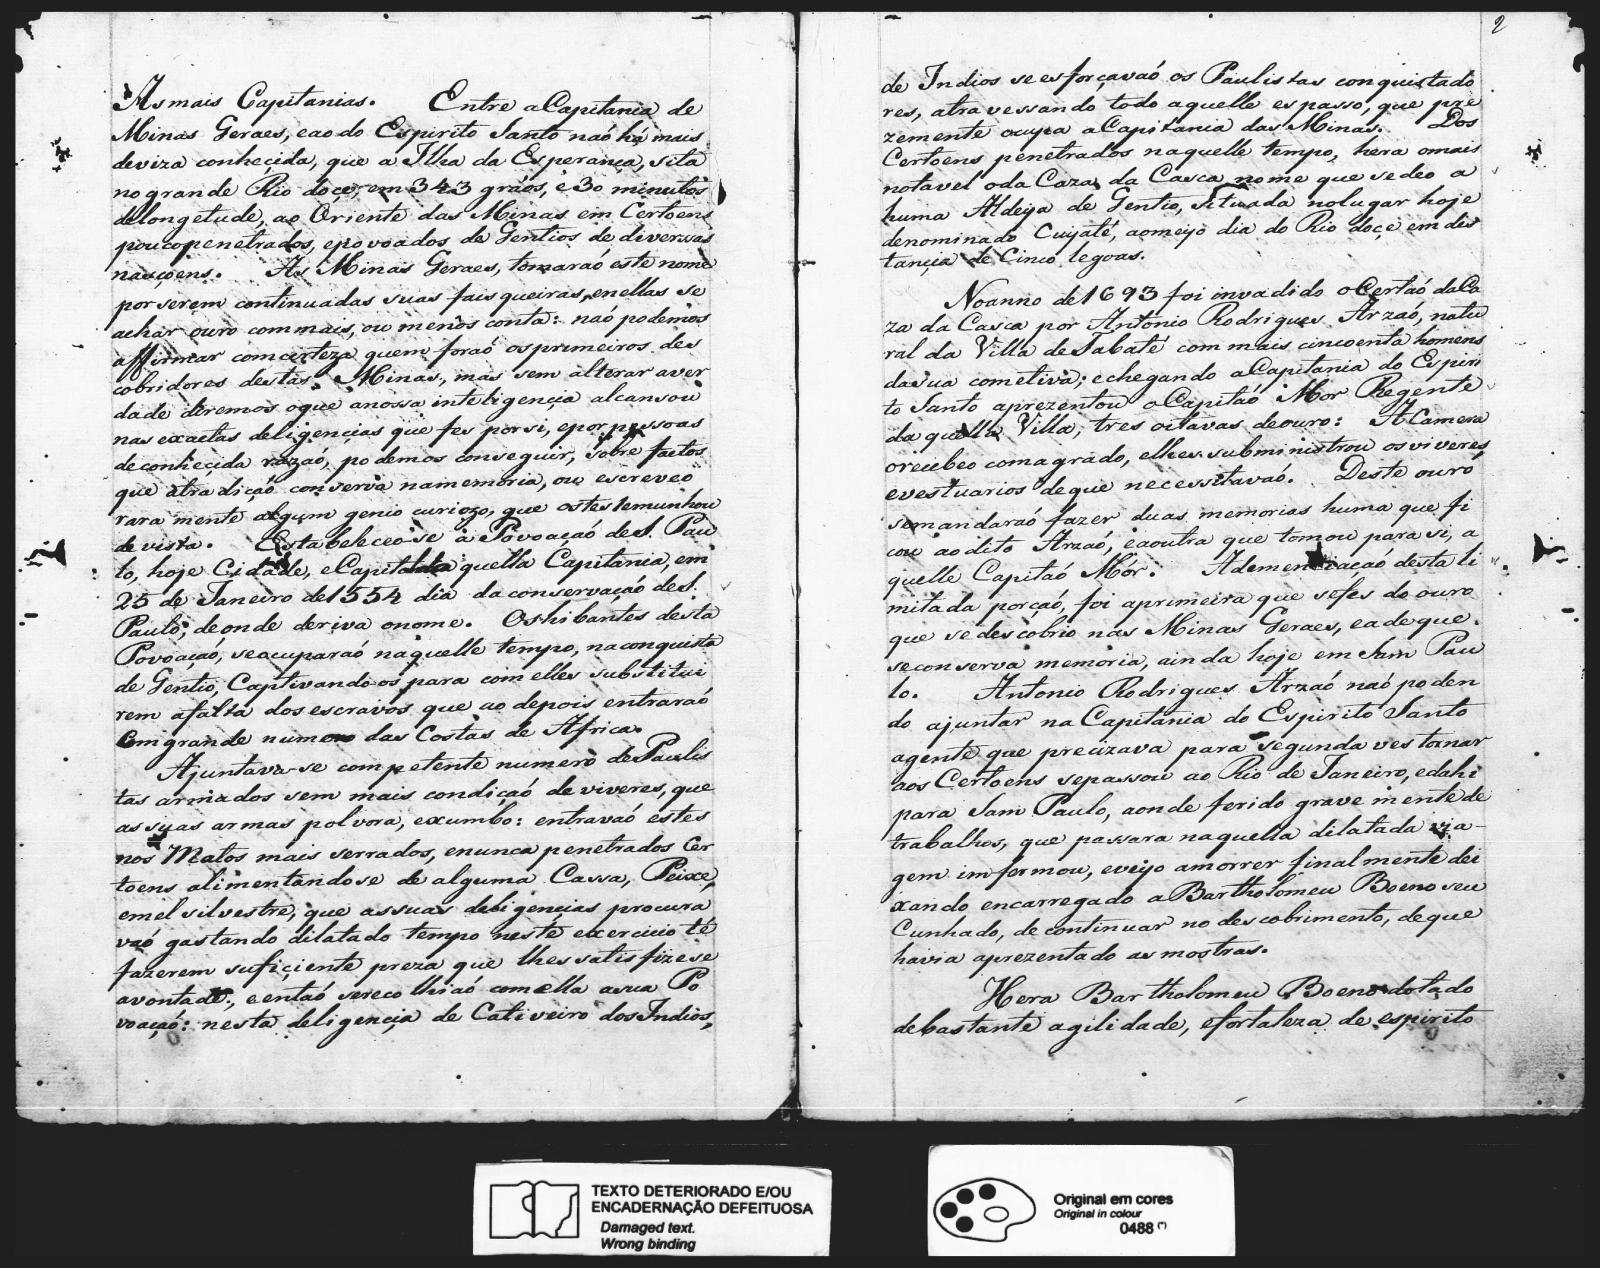 As mais Capitanias. Entre a Capitania de
Minas Geraes, e a do Espirito Santo naõ há mais
deviza conhecida, que a Ilha da Esperança, sita
no grande Rio doçe, em 343 gráos, e 30 minutos
de longetude, ao Oriente das Minas em Certoens
pouco penetrados, e povoados de Gentios de diversas
nasçoens. As Minas Geraes, tomaraõ este nome
por serem continuadas suas faisqueiras, e nellas se
achar ouro com mais, ou menos conta: naõ podemos
affirmar com certeza quem foraõ os primeiros des
cobridores destas Minas, mas sem alterar a ver
dade diremos o que a nossa inteligençia alcansou
nas exactas deligençias que fes por si, e por pessoas
de conhecida razaõ, podemos conseguir, sobre factos
que a tradiçaõ conserva na memoria, ou escreveo
rara mente algum genio curiozo, que os testemunhou
de vista. Estabeleceo-se a Povoaçaõ de S. Pau
lo, hoje Cidade, e Capital da quella Capitania, em
25 de Janeiro de 1554 dia da conservaçaõ de S.
Paulo, de onde deriva o nome. Os hibantes desta
Povoaçaõ, se ocuparaõ naquelle tempo, na conquista
de Gentio, Captivando-os para com elles substitui
rem a falta dos escravos que ao depois entraraõ
em grande numero das Costas de Africa.
Ajuntava-se competente numero de Paulis
tas armados sem mais condiçaõ de viveres, que
as suas armas polvora, e xumbo: entravaõ estes
nos Matos mais serrados, e nunca penetrados Cer
toens alimentandose de alguma Cassa, Peixe,
e mel silvestre, que as suas deligencias procura
vaõ gastando dilatado tempo neste exercicio té
fazerem sufiçiente preza que lhes satisfizese
a vontade; e entaõ se recolhiaõ com ella a sua Po
voaçaõ: nesta deligençia de Cativeiro dos Indios,
2
de Indios se esforçavaõ os Paulistas conquistado
res, atravessando todo aquelle espasso, que pre
zemente ocupa a Capitania das Minas. Dos
Certoens penetrados naquelle tempo, hera o mais
notavel o da Caza da Casca, nome que se deo a
huma Aldeya de Gentio, situada no lugar hoje
denominado Cuyaté, ao meyo dia do Rio doçe em dis
tançia de Cinco legoas.
No anno de 1693 foi invadido o Certaõ da Ca
za da Casca por Antonio Rodrigues Arzaõ, natu
ral da Villa de Tabaté com mais cincoenta homens
da sua cometiva; e chegando a Capitania do Espiri
to Santo aprezentou o Capitaõ Mor Regente
da quella Villa, tres oitavas de ouro: A Camera
o recebeo com agrado, e lhes subministrou os viveres,
e vestuarios de que necessitavaõ. Deste ouro
se mandaraõ fazer duas memorias huma que fi
cou ao dito Arzaõ, e a outra que tomou para si, a
quelle Capitaõ Mór. A desta li
mitada porçaõ, foi a primeira que se fes do ouro
que se descobrio nas Minas Geraes, e a de que
se conserva memoria, ainda hoje em Sam Pau
lo. Antonio Rodrigues Arzaõ naõ poden
do ajuntar na Capitania do Espirito Santo
a gente que precizava para segunda ves tornar
aos Certoens se passou ao Rio de Janeiro, e dahi
para Sam Paulo, aonde ferido grave mente de
trabalhos, que passara naquella dilatada via-
gem infermou, e veyo a morrer finalmente dei
xando encarregado a Bartholomeu Boeno seu
Cunhado, de continuar no descobrimento, de que
havia aprezentado as mostras.
Hera Bartholomeu Boeno dotado
de bastante agilidade, e fortaleza de espirito
TEXTO DETERIORADO E/OU
ENCADERNAÇÃO DEFEITUOSA
Damaged text.
Wrong binding
Original em cores
Original in colour
0488 (*)